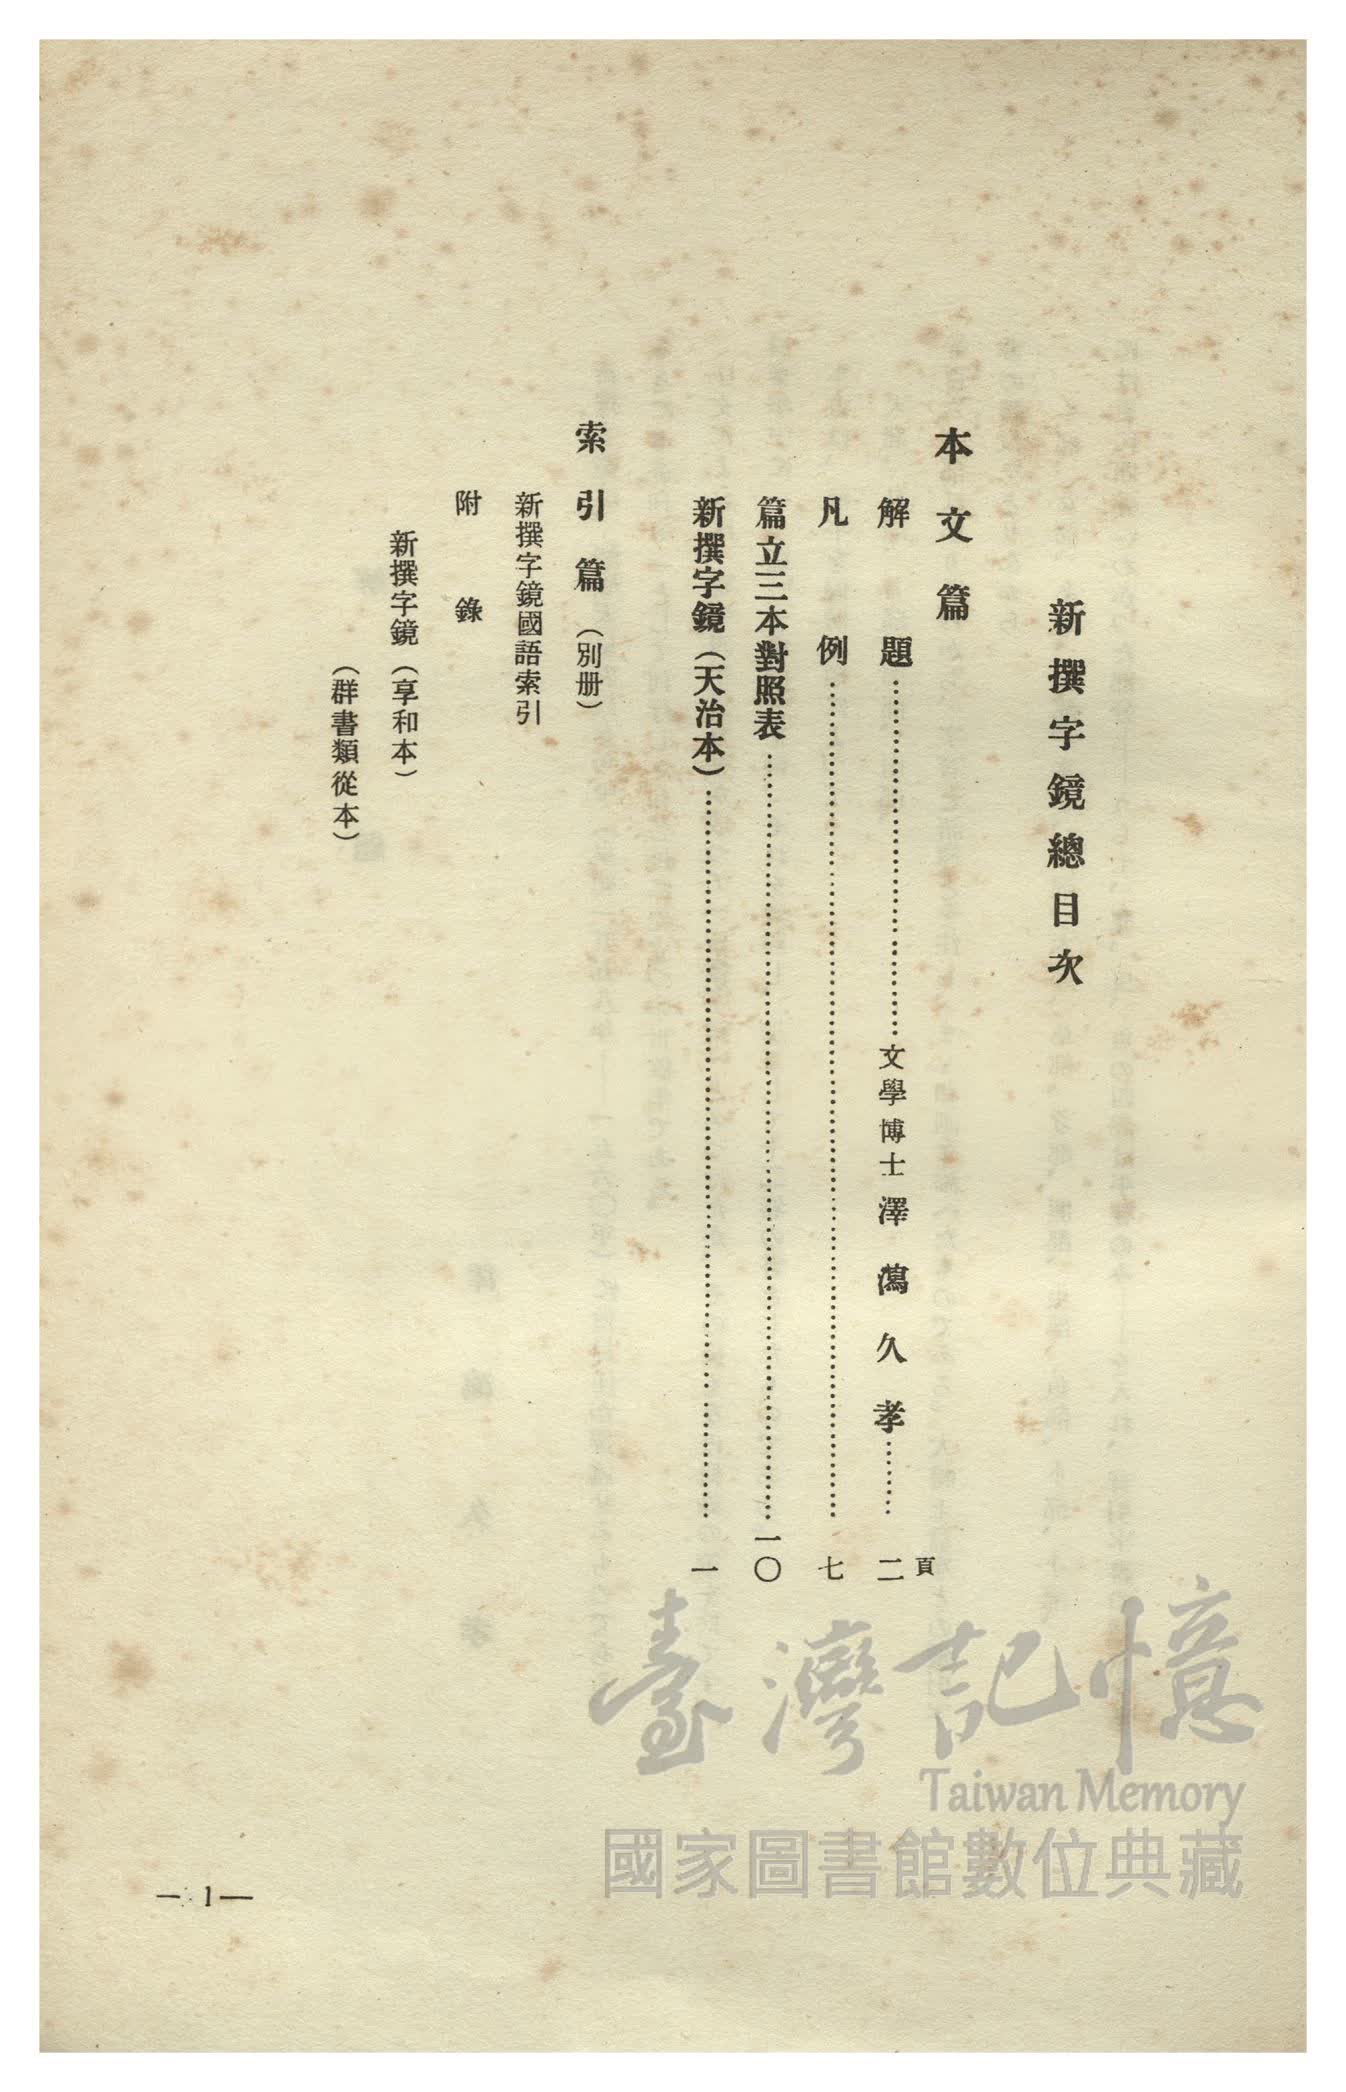 新撰字鏡總目次
本文篇
頁
解題……文學博士 澤瀉久孝……二
凡例……七
篇立三本對照表……一〇
新撰字鏡（天治本）……一
索引篇（別册）
新撰字鏡國語索引
附錄
新撰字鏡（享和本）
（群書類從本）
— 1 —
臺灣記憶
Taiwan Memory
國家圖書館數位典藏